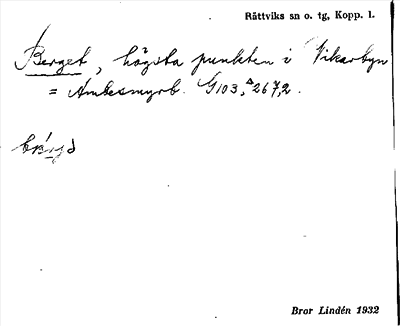 Rättviks sn o. tg, Kopp. l.
Berget, högsta punkten i Vikarbyn
= Ambesmyrb. G103, ᐞ267,2.
Bror Lindén 1932